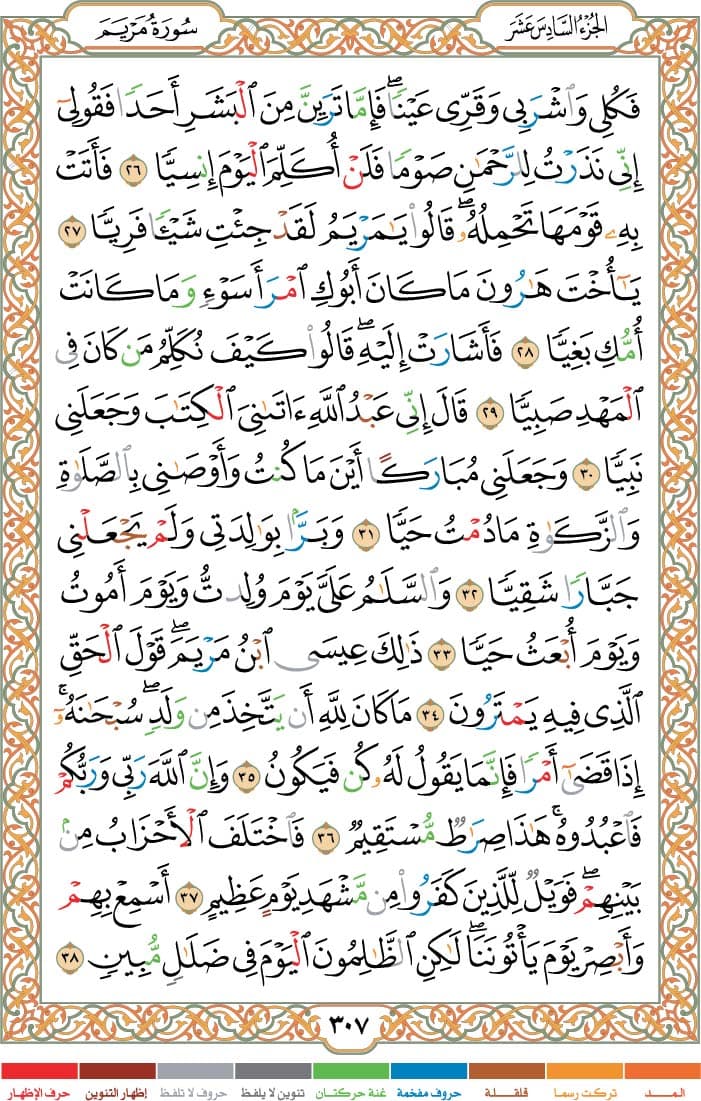 الجزء السادس عشر
سورة مريم
فَكُلِي وَٱشْرَبِي وَقَرِّي عَيْنًا ۖ فَإِمَّا تَرَيِنَّ مِنَ ٱلْبَشَرِ أَحَدًا فَقُولِيٓ
إِنِّي نَذَرْتُ لِلرَّحْمَٰنِ صَوْمًا فَلَنْ أُكَلِّمَ ٱلْيَوْمَ إِنسِيًّا ٢٦ فَأَتَتْ
بِهِۦ قَوْمَهَا تَحْمِلُهُۥ ۖ قَالُوا۟ يَٰمَرْيَمُ لَقَدْ جِئْتِ شَيْـًٔا فَرِيًّا ٢٧
يَٰٓأُخْتَ هَٰرُونَ مَا كَانَ أَبُوكِ ٱمْرَأَ سَوْءٍ وَمَا كَانَتْ
أُمُّكِ بَغِيًّا ٢٨ فَأَشَارَتْ إِلَيْهِ ۖ قَالُوا۟ كَيْفَ نُكَلِّمُ مَن كَانَ فِي
ٱلْمَهْدِ صَبِيًّا ٢٩ قَالَ إِنِّي عَبْدُ ٱللَّهِ ءَاتَىٰنِيَ ٱلْكِتَٰبَ وَجَعَلَنِي
نَبِيًّا ٣٠ وَجَعَلَنِي مُبَارَكًا أَيْنَ مَا كُنتُ وَأَوْصَٰنِي بِٱلصَّلَوٰةِ
وَٱلزَّكَوٰةِ مَا دُمْتُ حَيًّا ٣١ وَبَرًّۢا بِوَٰلِدَتِي وَلَمْ يَجْعَلْنِي
جَبَّارًا شَقِيًّا ٣٢ وَٱلسَّلَٰمُ عَلَيَّ يَوْمَ وُلِدتُّ وَيَوْمَ أَمُوتُ
وَيَوْمَ أُبْعَثُ حَيًّا ٣٣ ذَٰلِكَ عِيسَى ٱبْنُ مَرْيَمَ ۖ قَوْلَ ٱلْحَقِّ
ٱلَّذِي فِيهِ يَمْتَرُونَ ٣٤ مَا كَانَ لِلَّهِ أَن يَتَّخِذَ مِن وَلَدٍ ۖ سُبْحَٰنَهُۥٓ ۚ
إِذَا قَضَىٰٓ أَمْرًا فَإِنَّمَا يَقُولُ لَهُۥ كُن فَيَكُونُ ٣٥ وَإِنَّ ٱللَّهَ رَبِّي وَرَبُّكُمْ
فَٱعْبُدُوهُ ۚ هَٰذَا صِرَٰطٌ مُّسْتَقِيمٌ ٣٦ فَٱخْتَلَفَ ٱلْأَحْزَابُ مِنۢ
بَيْنِهِمْ ۖ فَوَيْلٌ لِّلَّذِينَ كَفَرُوا۟ مِن مَّشْهَدِ يَوْمٍ عَظِيمٍ ٣٧ أَسْمِعْ بِهِمْ
وَأَبْصِرْ يَوْمَ يَأْتُونَنَا ۖ لَٰكِنِ ٱلظَّٰلِمُونَ ٱلْيَوْمَ فِي ضَلَٰلٍ مُّبِينٍ ٣٨
٣٠٧
المـــد
تركت رسما
قلقلة
حروف مفخمة
غنة حركتان
تنوين لا يلفظ
حروف لا تلفظ
إظهار التنوين
حرف الإظهار